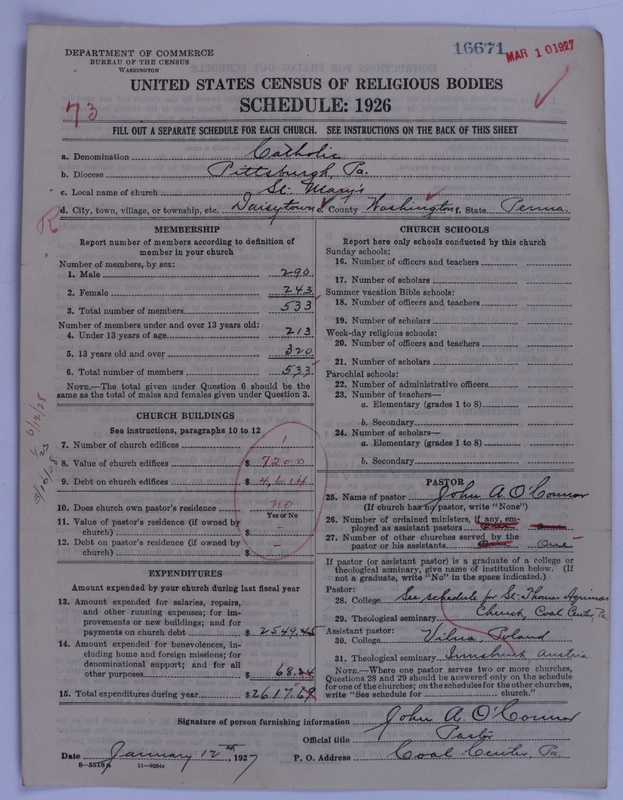 DEPARTMENT OF COMMERCE
BUREAU OF THE CENSUS
WASHINGTON
16671
MAR 10 1927
UNITED STATES CENSUS OF RELIGIOUS BODIES
SCHEDULE: 1926
73
FILL OUT A SEPARATE SCHEDULE FOR EACH CHURCH. SEE INSTRUCTIONS ON THE BACK OF THIS SHEET
a. Denomination Catholic
b. Diocese Pittsburgh, Pa.
c. Local name of church St. Mary's
d. City, town, village, or township, etc. Daisytown e. County Washington f. State Penna.
R
MEMBERSHIP
Report number of members according to definition of
member in your church
Number of members, by sex:
1. Male 290
2. Female 243
3. Total number of members 533
Number of members under and over 13 years old:
4. Under 13 years of age 213
5. 13 years old and over 320
6. Total number of members 533
NOTE.—The total given under Question 6 should be
same as the total of males and females given under Question 3.
CHURCH BUILDINGS
See instructions, paragraphs 10 to 12
7. Number of church edifices 1
8. Value of church edifices $ 7200
9. Debt on church edifices $ 4,614
10. Does church own pastor's residence no
Yes or No
11. Value of pastor's residence (if owned by
church) $ -
12. Debt on pastor's residence (if owned by
church) $ -
EXPENDITURES
Amount expended by your church during last fiscal year
13. Amount expended for salaries, repairs,
and other running expenses; for im-
provements or new buildings; and for
payments on church debt $ 2549.45
14. Amount expended for benevolences, in-
cluding home and foreign missions; for
denominational support; and for all
other purposes $ 68.24
15. Total expenditures during year $ 2617.69
CHURCH SCHOOLS
Report here only schools conducted by this church
Sunday schools:
16. Number of officers and teachers
17. Number of scholars
Summer vacation Bible schools:
18. Number of officers and teachers
19. Number of scholars
Week-day religious schools:
20. Number of officers and teachers
21. Number of scholars
Parochial schools:
22. Number of administrative officers
23. Number of teachers—
a. Elementary (grades 1 to 8)
b. Secondary
24. Number of scholars—
a. Elementary (grades 1 to 8)
b. Secondary
PASTOR
25. Name of pastor John A. O'Connor
(If church has no pastor, write "None")
26. Number of ordained ministers, if any, em-
ployed as assistant pastors
27. Number of other churches served by the
pastor or his assistants One
If pastor (or assistant pastor) is a graduate of a college or
theological seminary, give name of institution below. (If
not a graduate, write "No" in the space indicated.)
Pastor:
28. College See schedule for St. Thomas Aquinas
29. Theological seminary Church, Coal Center, Pa
Assistant pastor:
30. College Vilna, Poland
31. Theological seminary Innsbruck, Austria
NOTE.—Where one pastor serves two or more churches,
Questions 28 and 29 should be answered only on the schedule
for one of the churches; on the schedules for the other churches,
write "See schedule for church."
Signature of person furnishing information John A. O'Connor
Official title Pastor
Date January 12th, 1927 P. O. Address Coal Center, Pa.